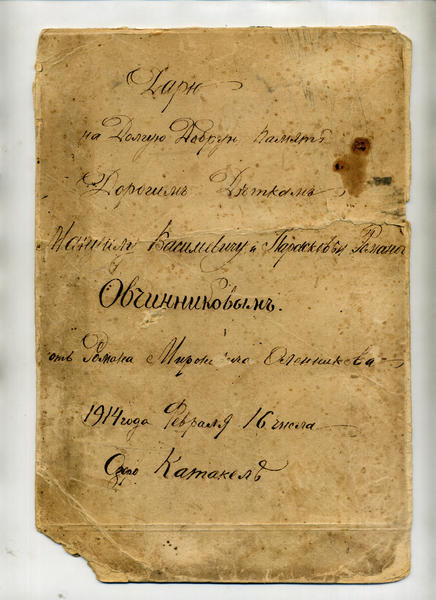 Дарю
на Долгую Добрую Память
Дорогимъ Дѣткамъ
Василевичу и Романов
Овчинниковымъ.
отъ Романа Миронов Оленникова
1914 года Февраля 16 числа
Катакелѣ